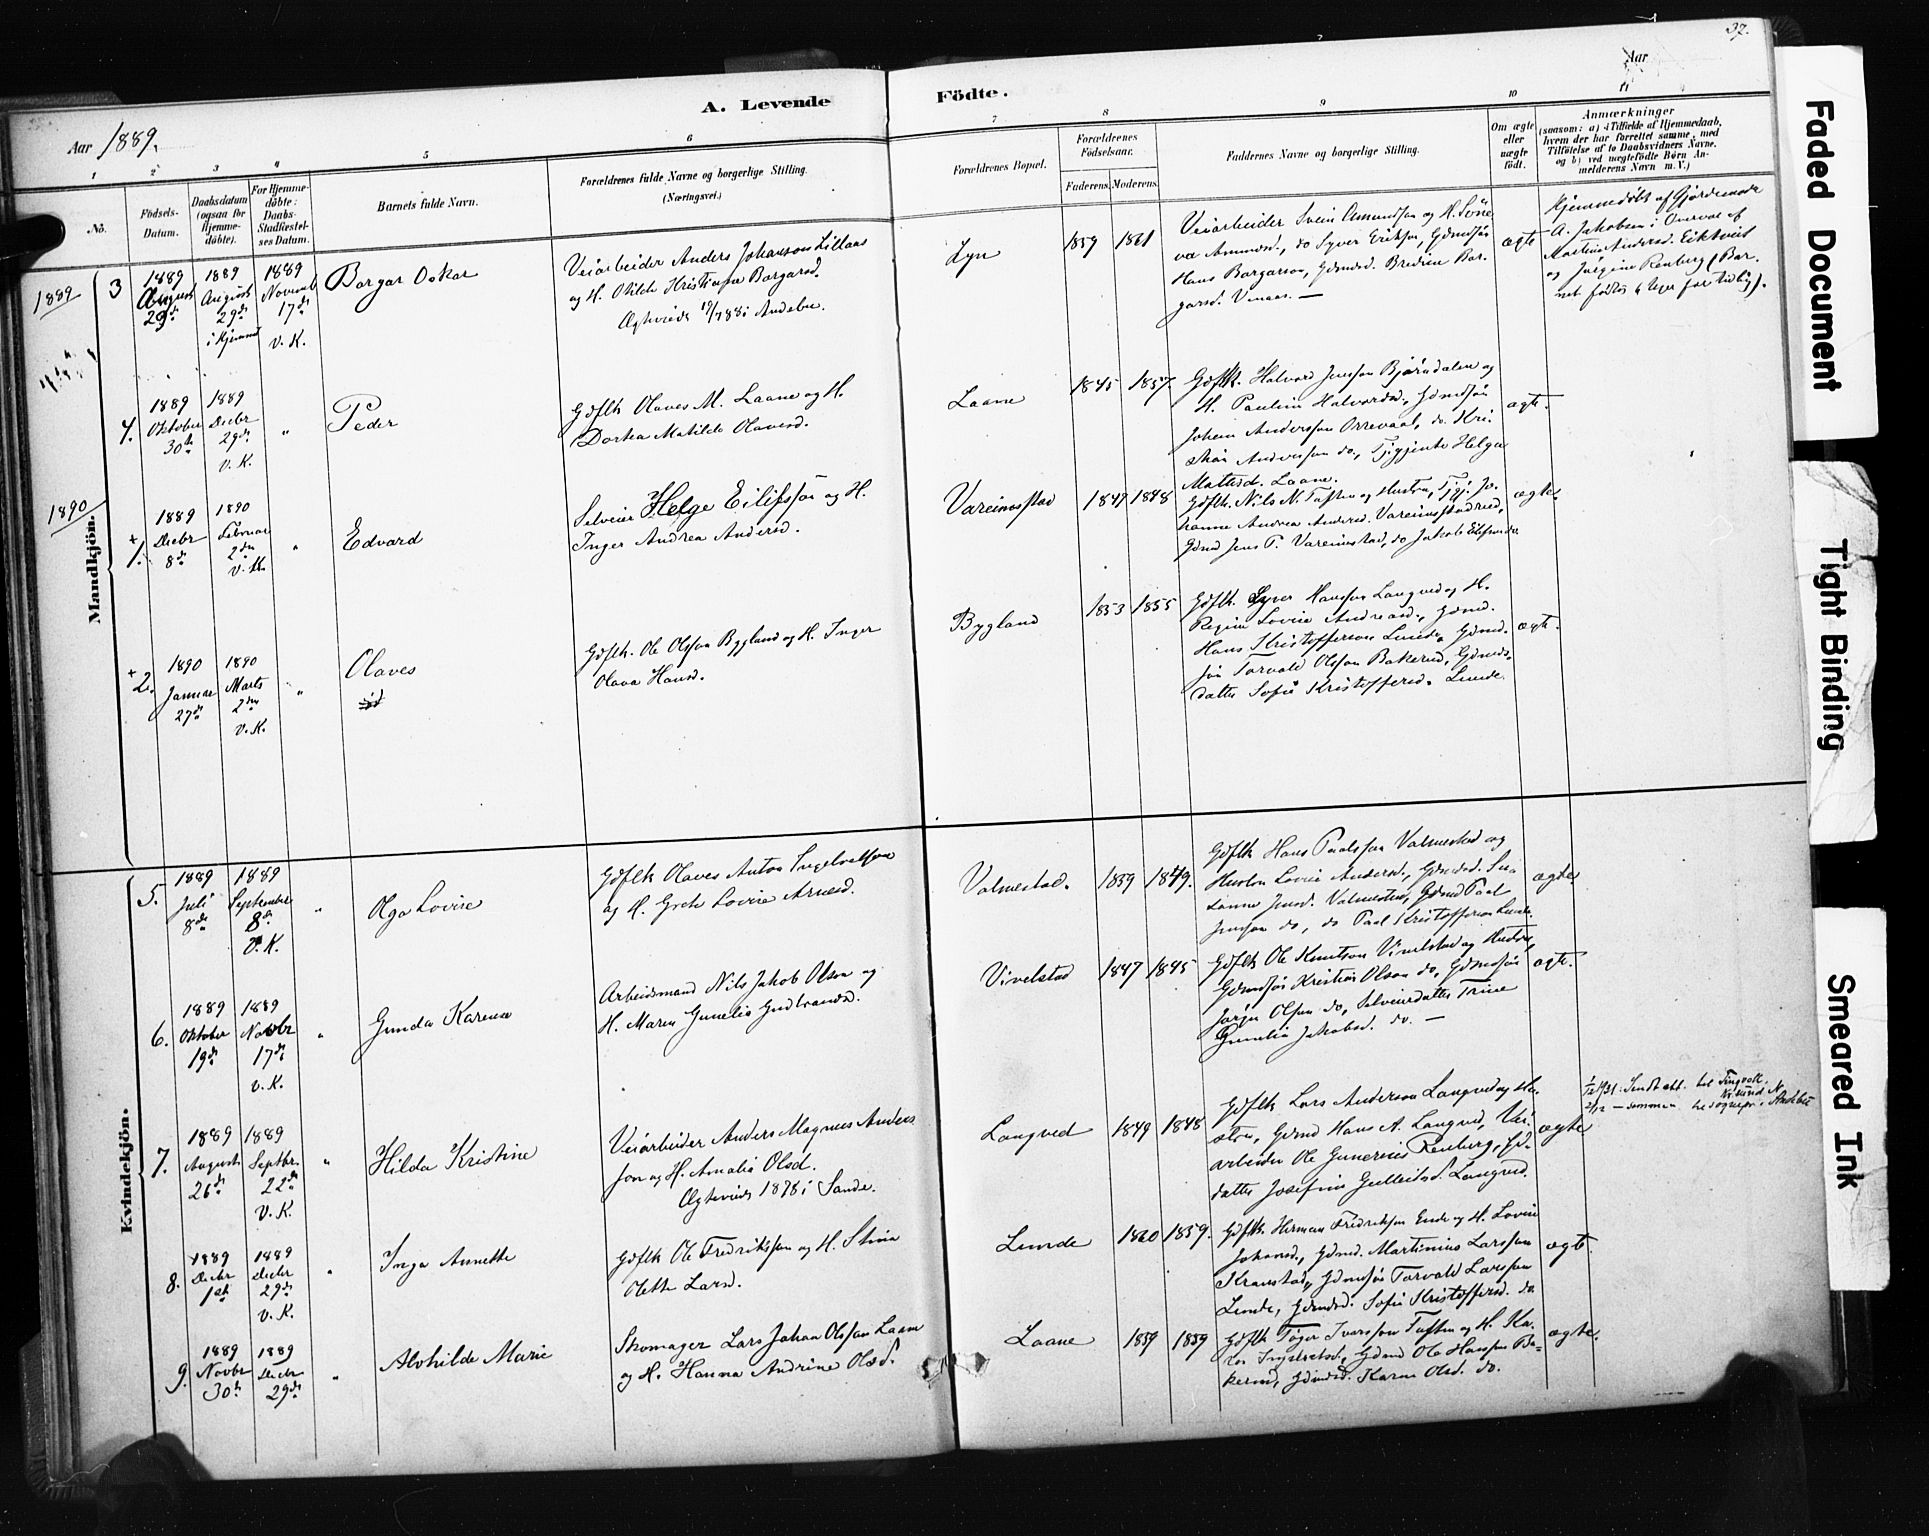 37.
Aar 1889.
A. Levende Födte.
Aar
1 2 3 4 5 6 7 8 9 10 11
No.
Födsels-
Datum.
Daabsdatum
(ogsaa for
Hjemme-
döbte).
For Hjemme-
döbte:
Daabs-
Stadfæstel-
ses Datum.
Barnets fulde Navn.
Forældrenes fulde Navne og borgerlige Stilling.
(Næringsvei.)
Forældrenes Bopæl.
Forældrenes
Födselsaar.
Faderens. Moderens.
Faddernes Navne og borgerlige Stilling.
Om ægte
eller
uægte
født.
Anmærkninger
(saasom: a) i Tilfælde af Hjemmedaab,
hvem der har forrettet samme, med
Tilföielse af to Daabsvidners Navne,
og b) ved uægtefödte Børn An-
melderens Navn m. V.)
Mandkjön.
1889
3
1889
August
29de
1889
August
29de
i Hjemmet
1889
Novemb
17de
v. K.
Borgar Oskar
Veiarbeider Anders Johansson Lillaas
og H. Otilde Kristiane Borgarsd.
Ægteviede 19/7 88 i Andebu.
Lyn
1859 1861
Veiarbeider Svein Amundsen og H.
Amunds., do Syver Eriksen, Gdmdsøn
Hans Borgarson, Gdmdsd. Bredine Bor-
garsd. Vinaas. —
ægte
Hjemmedøbt af Gjordemoder
A. Jakobsen i Overvær af
Martin Anders. Eiktveit
og Jørgine Renberg (Bar-
net fødtes 4 Uger for tidlig).
4.
1889
Oktober
30te
1889
Decbr
29de
v. K.
"
Peder
Gdflk Olaves M. Laane og H.
Dortea Matilde Olavesd.
Laane
1845 1857.
Gdflk. Halvord Jensson Bjørndalen og
H. Pauline Halvordsd., Gdmdsøn
Johan Anderssen Orrevaal, do. Kri-
stian Anderssen do., Tjgjente Helga
Matisd. Laane.
ægte.
1890
+
1.
1889
Decbr
8de
1890
Februar
2den
v. K.
"
Edvard
Selveier Helge Eilifssøn og H.
Inger Andrea Andersd.
Vareinostad
1847 1848
Gdflk. Nils N. Taften og Hustru, Tjgj. Jo-
hanne Andrea Andersd. Vareinostadrud,
Gdmd Jens P. Vareinostad, do Jakob
ægte.
+
2.
1890
Januar
27de
1890
Marts
2den
v. K.
"
Olaves
Gdflk. Ole Olssen Bygland og H. Inger
Olava Hansd.
Bygland
1853 1855
Gdflk. Syver Hanssen Langved og H.
Regine Lovise Andreasd., Gdmd.
Hans Kristofferson Lunde, Gdmd.-
søn Torvald Olssen Bakerud, Gdmds-
datter Sofie Kristoffersd. Lunde.
ægte.
Kvindekjön.
5.
1889
Juli
8de
1889
September
8de
v. K.
"
Olga Lovise
Gdflk Olaves Anton Ingebretsen
og H. Grete Lovise Arnesd.
Valmestad.
1859 1849.
Gdflk Hans Paalsson Valmestad og
Hustru Lovise Andersd., Gdmdsd. Su-
sanne Jensd. Valmestad, Gdmd Paal
Jensson do, do Paal Kristofferson Lunde.
ægte.
6.
1889
Oktober
19de
1889
Novbr
17de
v. K.
"
Gunda Karense
Arbeidsmand Nils Jakob Olsen og
H. Maren Gunelie Gudbrandsd.
Vivelstad
1847 1845
Gdflk Ole Knutson Vivelstad og Hustru,
Gdmdsøn Kristian Olson do, Gdmdsøn
Jørgen Olsen do, Selveierdatter Trine
Gunelie Jakobsd. do. —
ægte.
7.
1889
August
26de
1889
Septbr.
22de
v. K.
"
Hilda Kristine
Veiarbeider Anders Magnus Anders-
son og H. Amalia Olsd.
Ægteviede 1878 i Sande.
Langved
1849 1848
Gdflk Lars Anderson Langved og Hu-
stru, Gdmd Hans A. Langved, Vei-
arbeider Ole Gunerius Renberg, Gd-
datter Josefine Gulleiksd. Langved.
ægte
1/12 1931. Sendt att. til Tingvoll,
Kr.sund N.
2/12 — sammen til sognepr. i Andebu
8.
1889
Decbr
1ste
1889
Decbr
29de
v. K.
"
Inga Annette
Gdflk Ole Fredriksen og H. Stina
Olette Larsd.
Lunde
1860 1859.
Gdflk. Herman Fredriksen Ende og H. Lovise
Johansd., Gdmd. Martinius Larssen
Kranstad, Gdmdsøn Torvald Larssen
Lunde, Gdmdsd. Sofie Kristoffersd. do.
ægte.
9.
1889
Novbr
30te
1889
Decbr
29de
"
Alvhilde Marie
Skomager Lars Johan Olssen Laane
og H. Hanna Andrine Olsd.
Laane
1859 1859
Gdflk Tøger Iverssen Taften og H. Ka-
ren Ingebretsd., Gdmd Ole Hansen Ba-
kerud, Gdmdsd. Karen Olsd. do.
ægte.
Faded Document
Tight Binding
Smeared Ink